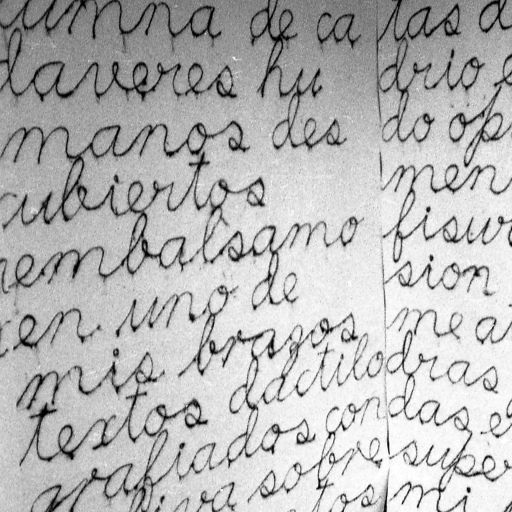 umna de ca
daveres hu
manos des
cubiertos
rembalsamo
en uno de
mis brazos
textos dactilo
grafiados con
saliva sobre
tas d
drio e
do op
men
fisur
sion
me a
dras
das e
super
mi